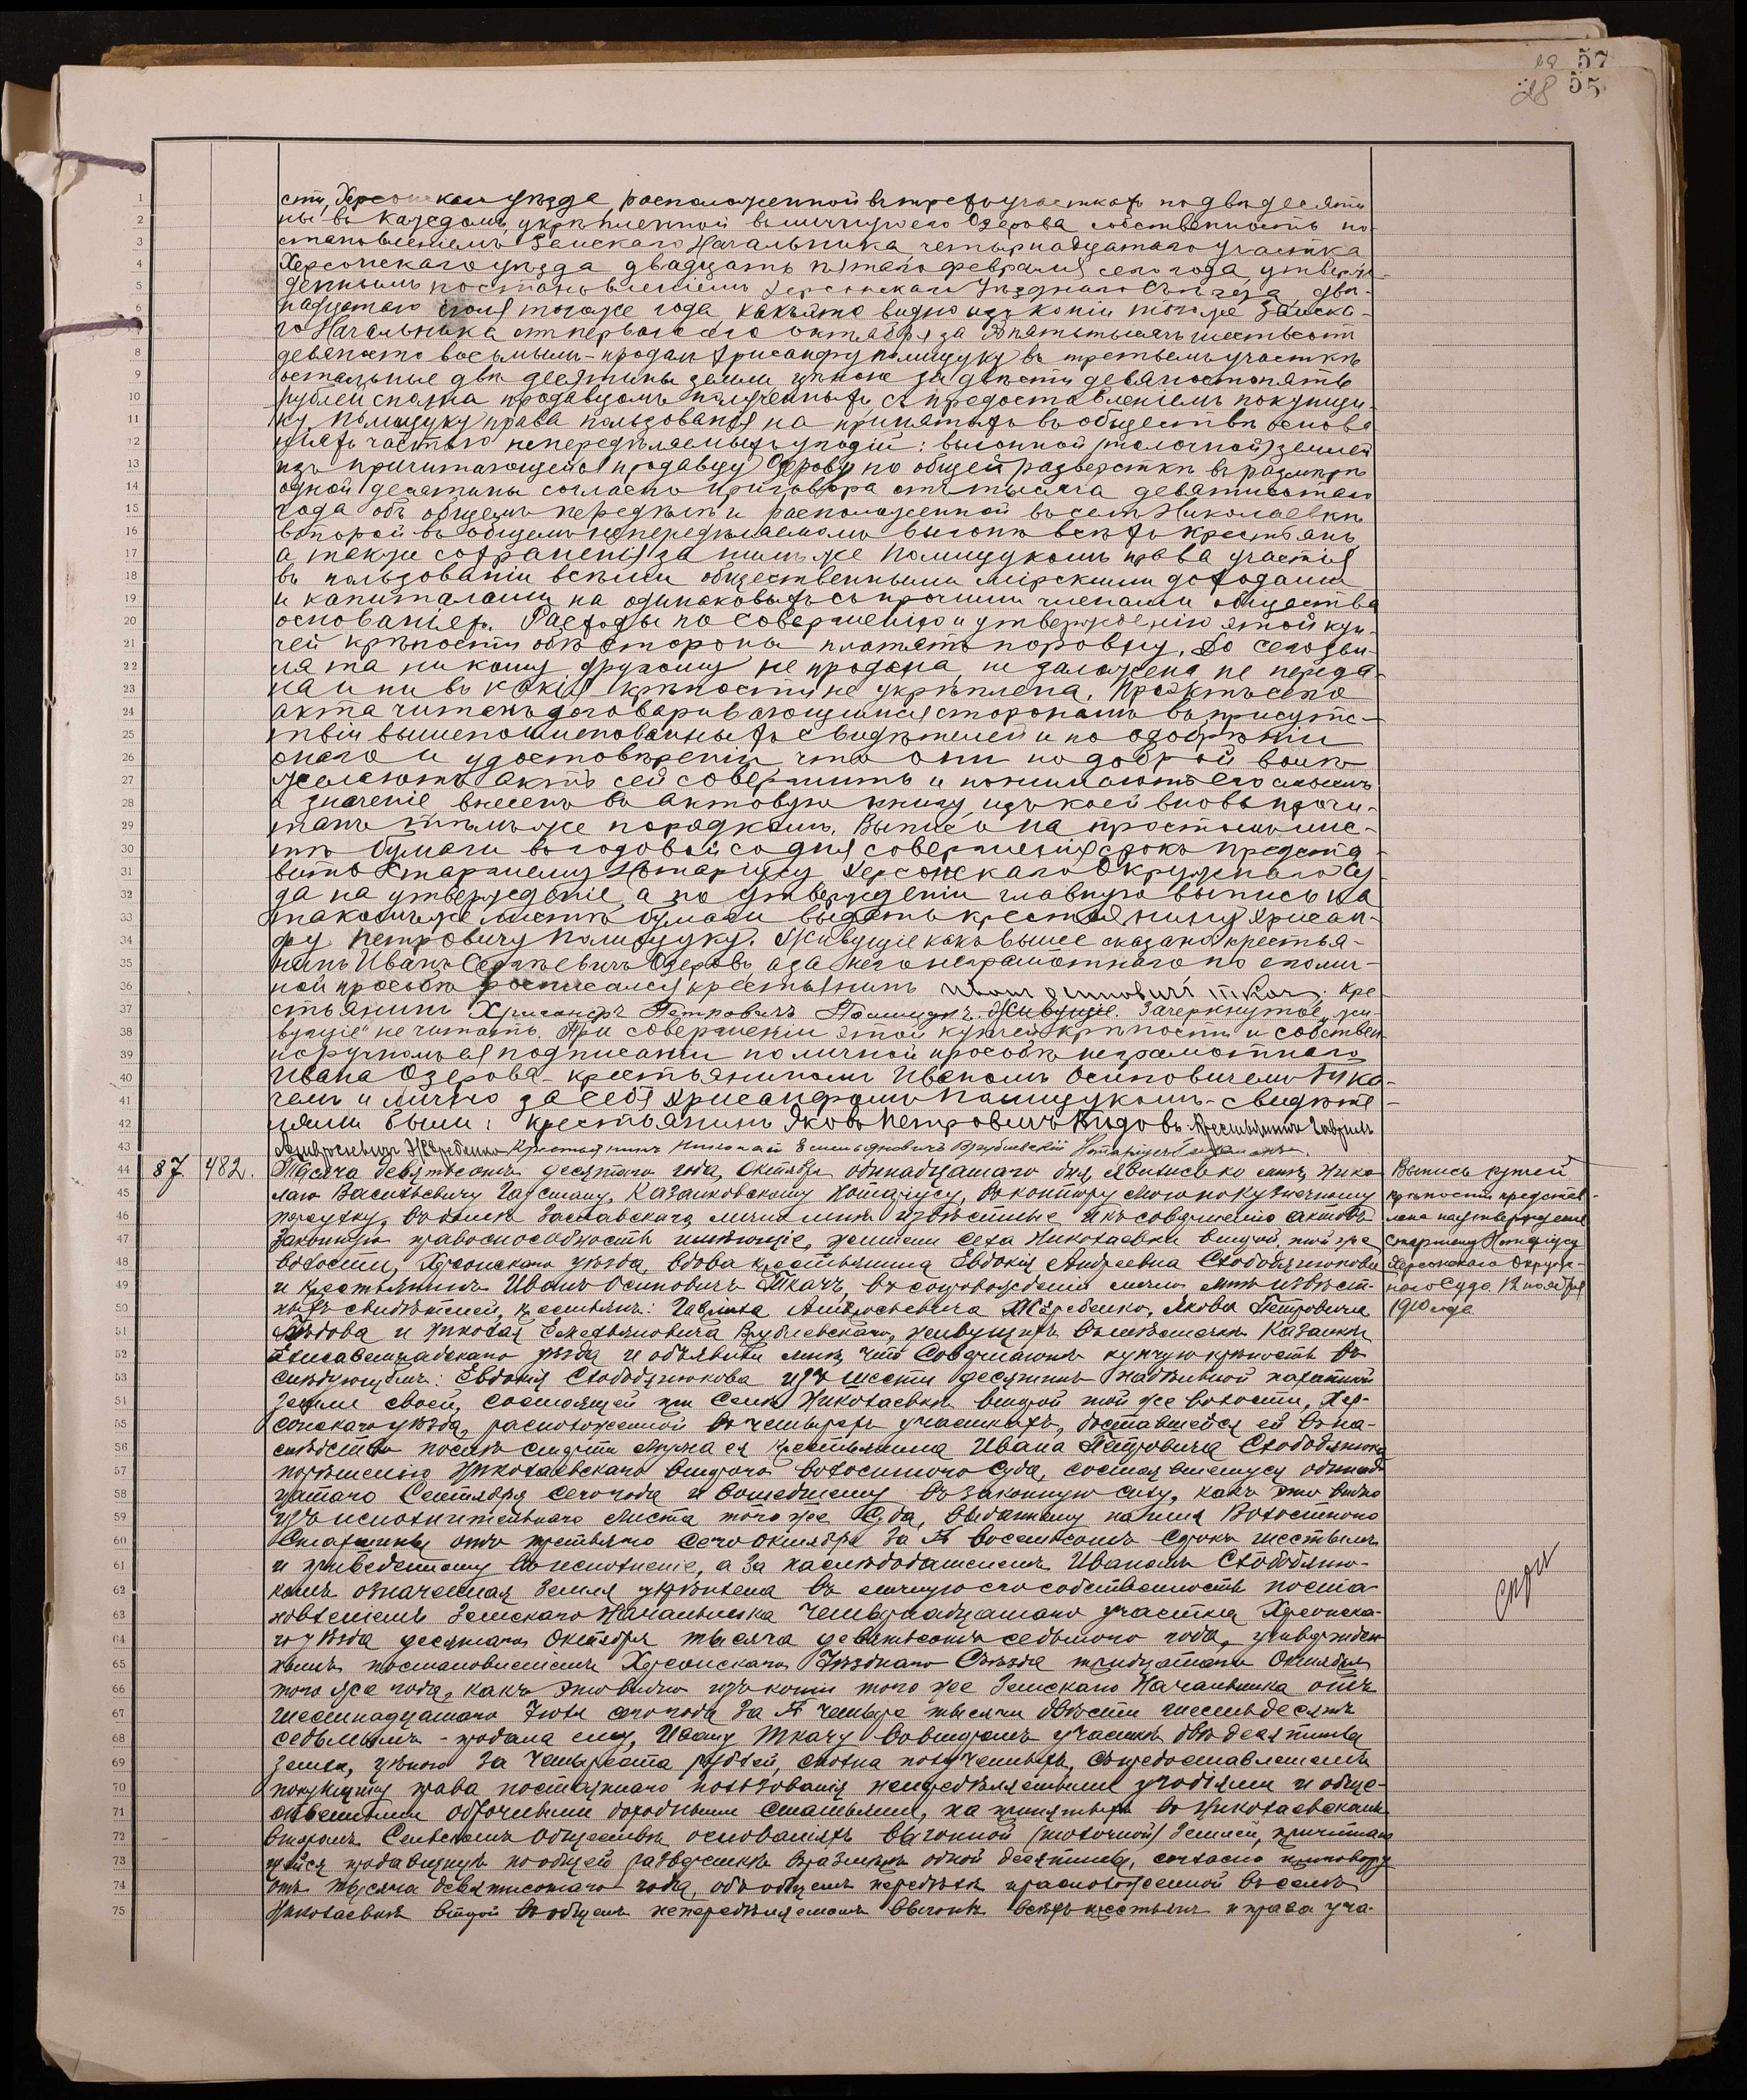 29 57
28 55
сти, Херсонскаго уѣзда, расположенной въ трехъ участкахъ по двѣ десяти
ны въ каждомъ, укрѣпленной въ личную его Озерова собственность по-
становленіемъ Земскаго Начальника четырнадцатаго участка
Херсонскаго уѣзда двадцать пятаго февраля сего года, утверж-
деннымъ постановленіемъ Херсонскаго Уѣзднаго Съѣзда, две-
надцатаго іюля того же года, какъ это видно изъ копіи того же Земска-
го Начальника отъ перваго сего октября за № пять тысячъ шестьсотъ
девяносто восьмымъ - продалъ Хрисанфу Полищуку въ третьемъ участкѣ
остальные двѣ десятины земли, цѣною за двѣсти девяносто пять
рублей сполна продавцомъ полученныхъ съ предоставленіемъ покупщи-
ку Полищуку права пользованія на принятыхъ въ обществѣ основа
ніяхъ частью непередѣляемыхъ угодій: выгонной (толочной) землей
изъ причитающейся продавцу Озерову по общей разверсткѣ въ размѣрѣ
одной десятины согласно приговора отъ тысяча девятисотаго
года объ общемъ передѣлѣ и расположенной въ селѣ Николаевкѣ
второй въ общемъ непередѣляемомъ выгонѣ всѣхъ крестьянъ
а также сохраненія за нимъ же Полищукомъ права участія
въ пользованіи всѣми общественными мірскими доходами
и капиталами на одинаковыхъ съ прочими членами общества
основаніяхъ. Расходы по совершенію и утвержденію этой куп-
чей крѣпости обѣ стороны платятъ поровну. До сего зем-
ля та никому другому не продана, не заложена, не переда-
на и ни въ какія крѣпости не укрѣплена. Проэктъ сего
акта читанъ договаривающимся сторонамъ въ присутс-
твіи вышепоименованныхъ свидѣтелей и по одобреніи
онаго и удостовѣреніи что они по доброй волѣ
желаютъ актъ сей совершить и понимаютъ его смыслъ
и значеніе внесенъ въ актовую книгу, изъ коей вновь прочи-
танъ тѣмъ же порядкомъ. Выпись на простомъ лис-
тѣ бумаги въ годовой со дня совершенія срокъ предста-
вить Старшему Нотаріусу Херсонскаго Окружнаго Су-
да на утвержденіе, а по утвержденіи главную выпись на
такомъ же листѣ бумаги выдать крестьянину Хрисан-
фу Петровичу Полищуку. Живущіе какъ выше сказано крестья-
нинъ Иванъ Сергѣевичъ Озеровъ, а за него неграмотнаго по его лич-
ной просьбѣ росписался крестьянинъ Иванъ Осиповичъ Ткачъ. кре-
стьянинъ Хрисанфъ Петровичъ Полищукъ. Живущіе. Зачеркнутое „жи-
вущіе" не читать. При совершеніи этой купчей крѣпости и собствен-
норучномъ ея подписаніи по личной просьбѣ неграмотнаго
Ивана Озерова - крестьяниномъ Иваномъ Осиповичемъ Тка-
чемъ и лично за себя Хрисанфомъ Полищукомъ - свидѣте-
лями были: крестьянинъ Яковъ Петровичъ Видовъ. Крестьянинъ Гаврилъ
Амвросьевичъ Жеребенко Крестьянинъ Николай Емельяновичъ Врублевскій Нотаріусъ Гаусманъ.
87. 482. Тысяча девятьсотъ десятаго года, Октября одинадцатаго дня, явились ко мнѣ, Нико
лаю Васильевичу Гаусману, Казанковскому Нотаріусу, въ контору мою по Кузнечному
переулку, въ домѣ Заславскаго, лично мнѣ извѣстные и къ совершенію актовъ
законную правоспособность имѣющіе, жители села Николаевки второй, той же
волости, Херсонскаго уѣзда, вдова крестьянина Евдокія Андреевна Слободянюкова
и крестьянинъ Иванъ Осиповичъ Ткачъ, въ сопровожденіи лично мнѣ извѣст-
ныхъ свидѣтелей, крестьянъ: Гаврила Амвросьевича Жеребенко, Якова Петровича
Видова и Николая Емельяновича Врублевскаго, живущихъ въ мѣстечкѣ Казанкѣ
Елисаветградскаго уѣзда и объявили мнѣ, что совершаютъ купчую крѣпость въ
слѣдующемъ: Евдокія Слободянюкова изъ шести десятинъ надѣльной пахатной
земли своей, состоящей при селѣ Николаевкѣ второй той же волости, Хер-
сонскаго уѣзда, расположенной въ четырехъ участкахъ, доставшейся ей въ на-
слѣдство послѣ смерти мужа ея крестьянина Ивана Петровича Слободянюка
по рѣшенію Николаевскаго второго волостного Суда, состоявшемуся одинад-
цатаго Сентября сего года и вошедшему въ законную силу, какъ это видно
изъ исполнительнаго листа того же Суда, выданному на имя Волостного
Старшины отъ третьяго сего октября за № восемьсотъ сорокъ шестымъ
и приведенному въ исполненіе, а за наслѣдодателемъ Иваномъ Слободяню-
комъ означенная земля укрѣплена въ личную его собственность поста-
новленіемъ Земскаго Начальника четырнадцатаго участка Херсонска-
го уѣзда десятаго Октября тысяча девятьсотъ седьмого года, утвержден-
нымъ постановленіемъ Херсонскаго Уѣзднаго Съѣзда тридцатаго Октября
того же года, какъ это видно изъ копіи того же Земскаго Начальника отъ
шестнадцатаго Іюля сего года за № четыре тысячи двѣсти шестьдесятъ
седьмымъ - продала ему, Ивану Ткачу во второмъ участкѣ двѣ десятины
земли, цѣною за четыреста рублей, сполна полученныхъ, съ предоставленіемъ
покупщику права постояннаго пользованія непередѣляемыми угодіями и обще-
ственными оброчными доходными статьями, на принятыхъ въ Николаевскомъ
второмъ Сельскомъ Обществѣ основаніяхъ выгонной (толочной) землей, причитаю
щейся продавщицѣ по общей разверсткѣ въ размѣрѣ одной десятины, согласно приговору
отъ тысяча девятисотаго года, объ общемъ передѣлѣ и расположенной въ селѣ
Николаевкѣ второй въ общемъ непередѣляемомъ выгонѣ всѣхъ крестьянъ и права уча-
Выпись купчей
крѣпости представ-
лена на утвержденіе
Старшему Нотаріусу
Херсонскаго Окруж-
наго Суда 12 ноября
1910 года.